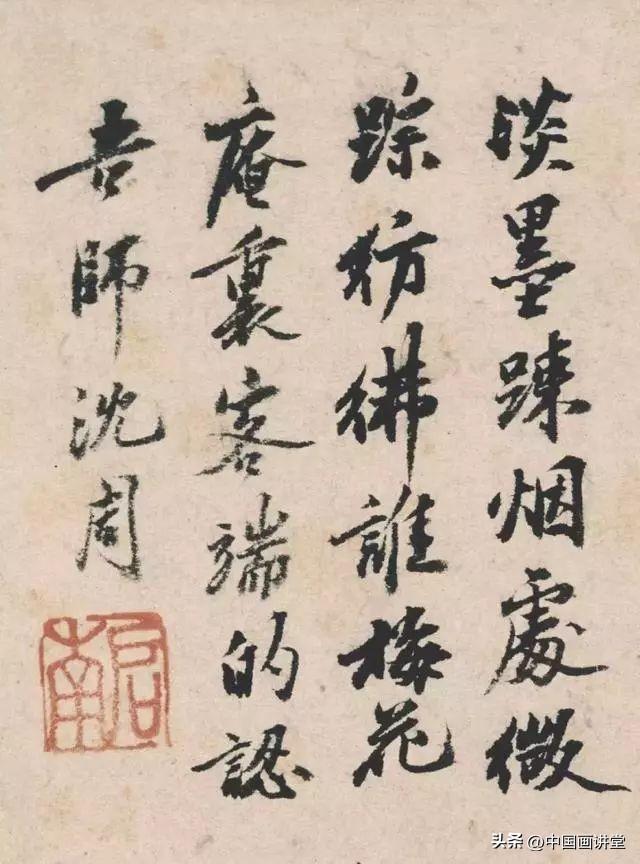 淡墨踈烟處微
踪彷彿誰梅花
庵裏客端的認
吾師沈周
启南
头条 @中国画讲堂